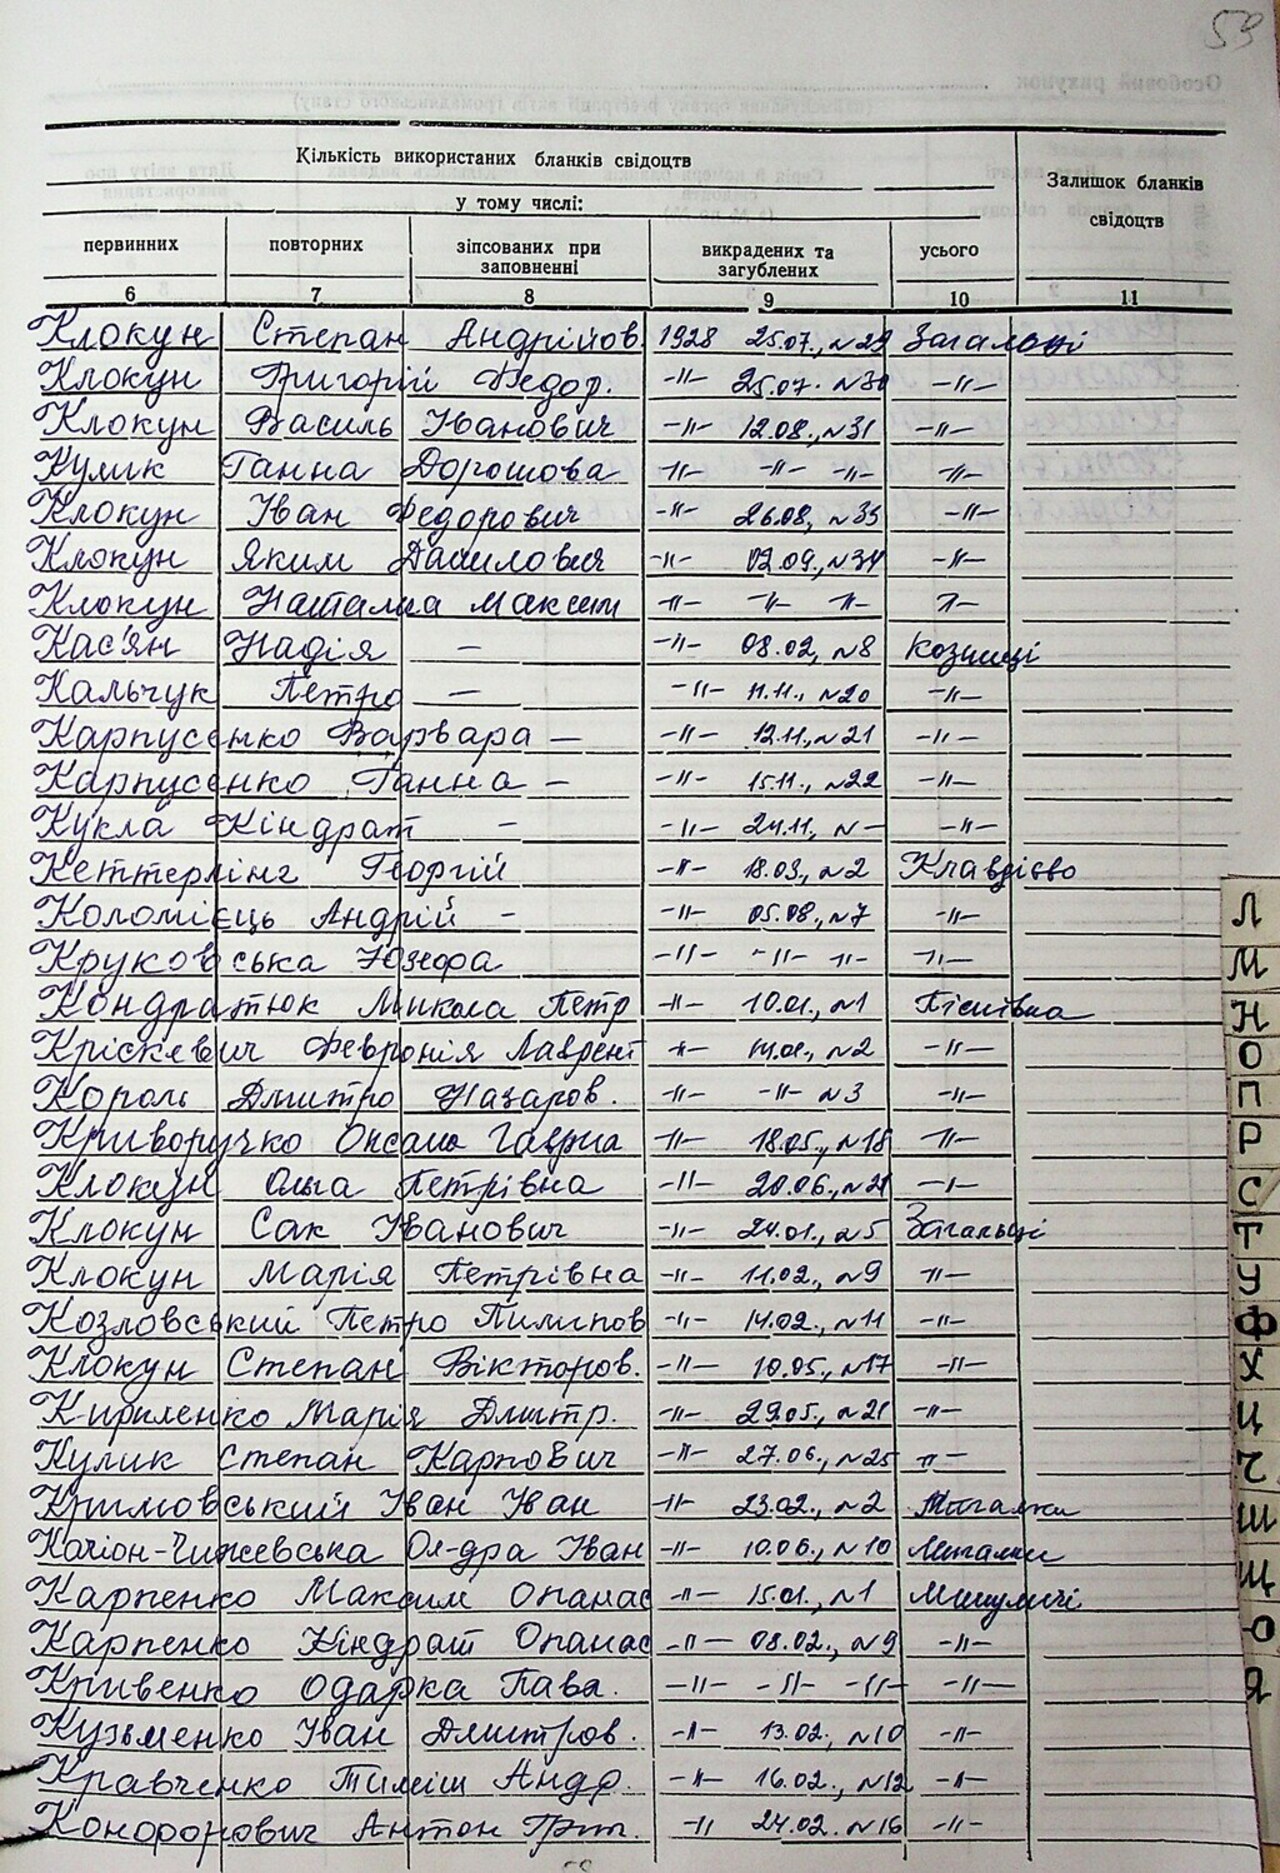 59
Кількість використаних бланків свідоцтв
у тому числі:
Залишок бланків свідоцтв
первинних повторних зіпсованих при заповненні викрадених та загублених усього
6 7 8 9 10 11
Клокун Степан Андрійов. 1928 25.07., №29 Загальці
Клокун Григорій Федор. -"- 25.07. №30 -"-
Клокун Василь Іванович -"- 12.08., №31 -"-
Кулик Ганна Дорошова -"- -"- -"- -"-
Клокун Іван Федорович -"- 26.08, №33 -"-
Клокун Яким Данилович -"- 02.09., №34 -"-
Клокун Наталка Максим -"- -"- -"- -"-
Кас'ян Надія – -"- 08.02, №8 Козинці
Кальчук Петро – -"- 11.11., №20 -"-
Карпусенко Варвара – -"- 12.11, №21 -"-
Карпусенко Ганна – -"- 15.11., №22 -"-
Кукла Кіндрат – -"- 24.11, № – -"-
Кеттерлінг Георгій -"- 18.03., №2 Клавдієво
Коломієць Андрій – -"- 05.08., №7 -"-
Круковська Юзефа -"- -"- -"- -"-
Кондратюк Микола Петр -"- 10.01., №1 Пісківка
Кріскевич Февронія Лаврент -"- 14.01., №2 -"-
Король Дмитро Назаров. -"- -"- №3 -"-
Криворучко Оксана Гаврил -"- 18.05., №18 -"-
Клокун Ольга Петрівна -"- 20.06., №21 -"-
Клокун Сак Іванович -"- 24.01., №5 Загальці
Клокун Марія Петрівна -"- 11.02., №9 -"-
Козловський Петро Пилипов -"- 14.02., №11 -"-
Клокун Степан Вікторов. -"- 10.05, №17 -"-
Кириленко Марія Дмитр. -"- 29.05., №21 -"-
Кулик Степан Карпович -"- 27.06., №25 -"-
Кримовський Іван Іван -"- 23.02., №2 Мигалки
Качіон-Чижевська Ол-дра Іван -"- 10.06., №10 Мигалки
Карпенко Максим Опанас -"- 15.01., №1 Микуличі
Карпенко Кіндрат Опанас -"- 08.02., №9 -"-
Кривенко Одарка Павл. -"- -"- -"- -"-
Кузьменко Іван Дмитров. -"- 13.02., №10 -"-
Кравченко Тиміш Андр. -"- 16.02., №12 -"-
Конофорович Антон Григ. -"- 24.02. №16 -"-
Л
М
Н
О
П
Р
С
Т
У
Ф
Х
Ц
Ч
Ш
Щ
Ю
Я